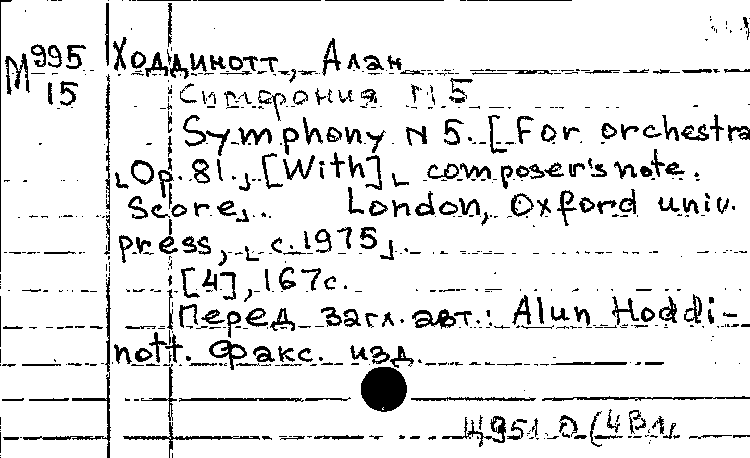 М 995
15
Ходдинотт, Алан
Симфония N 5
Symphony N 5. [For orchestra
⌞Op. 81.⌟ [With] ⌞ composer's note.
Score⌟.. London, Oxford univ.
press, ⌞ c. 1975⌟.
[4], 167с.
Перед загл. авт.: Alun Hoddi-
nott. Факс. изд.
Щ951.0(4Вл